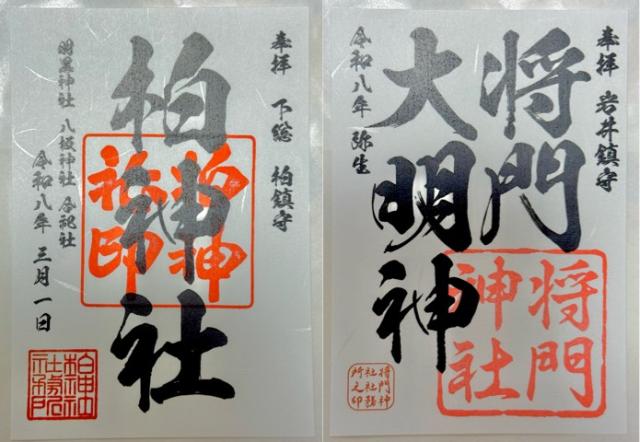 奉拝 下総 柏鎮守
柏神社
柏神
社印
羽黒神社 八坂神社 合祀社
令和八年 三月一日
奉拝 岩井鎮守
将門
大明神
令和八年 弥生
将門
神社
将門神
社社務
所之印